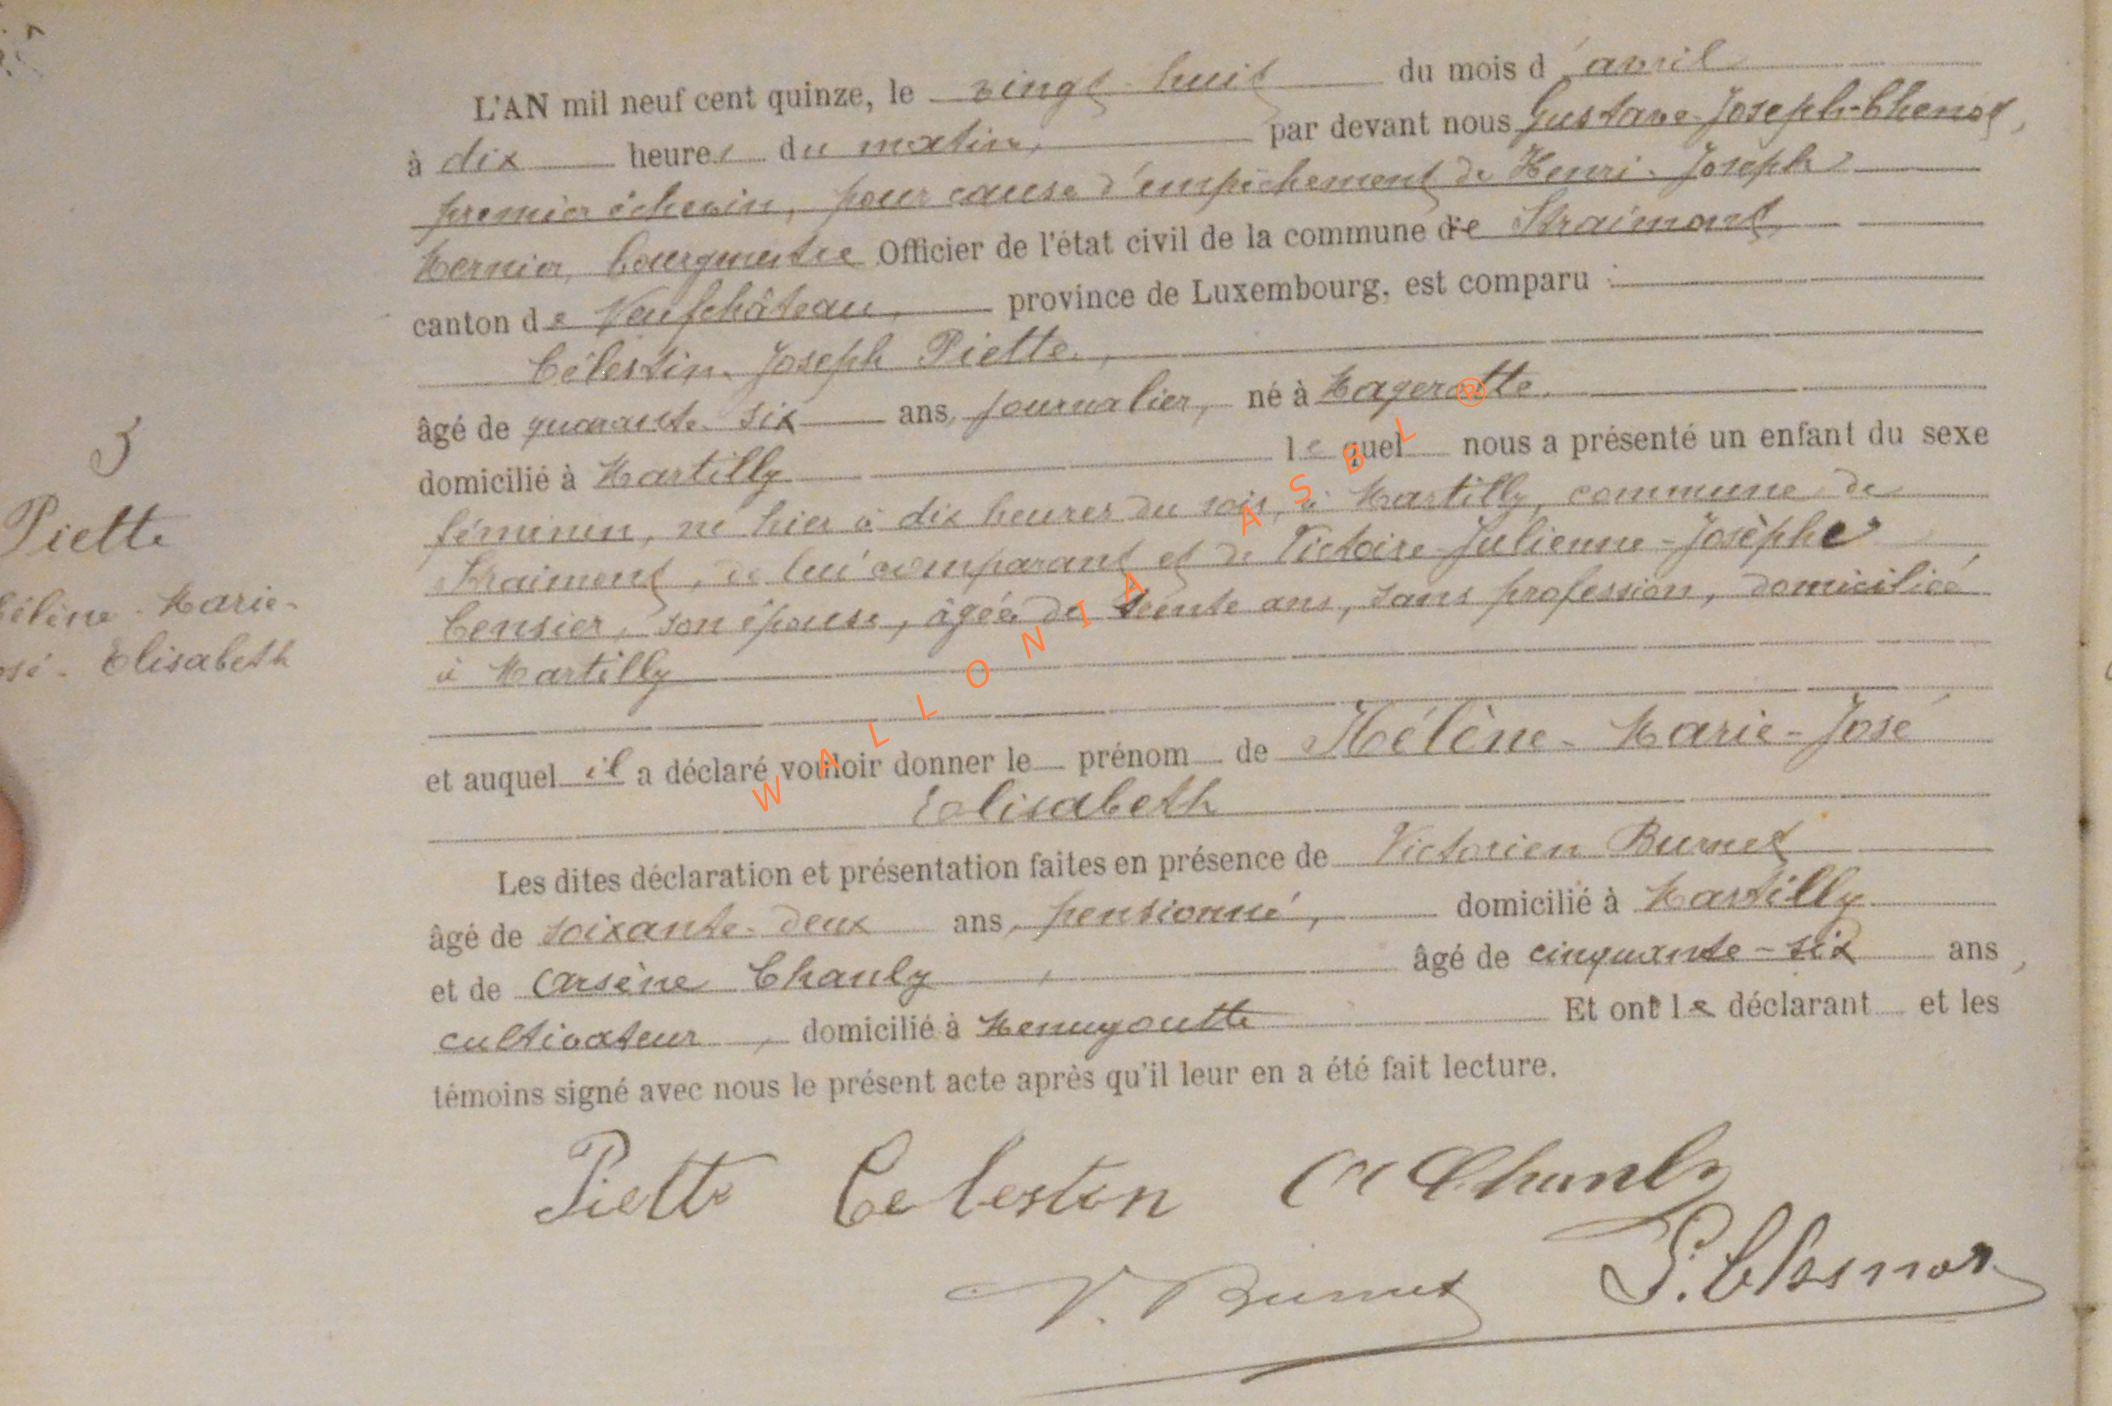 L'AN mil neuf cent quinze, le vingt-huit du mois d'avril
à dix heures du matin, par devant nous Gustave-Joseph-Chenot,
premier échevin, pour cause d'empêchement de Henri-Joseph
Mernier, bourgmestre Officier de l'état civil de la commune de Straimont,
canton de Neufchâteau, province de Luxembourg, est comparu :
Célestin-Joseph Piette,
âgé de quarante-six ans, journalier, né à Magerotte,
domicilié à Martilly lequel nous a présenté un enfant du sexe
féminin, né hier à dix heures du soir, à Martilly, commune de
Straimont, de lui comparant et de Victoire-Julienne-Josèphe
Censier, son épouse, âgée de trente ans, sans profession, domiciliée
à Martilly
et auquel il a déclaré vouloir donner le prénom de Hélène-Marie-José
Elisabeth
Les dites déclaration et présentation faites en présence de Victorien Burnet
âgé de soixante-deux ans, pensionné, domicilié à Martilly
et de Arsène Chanly, âgé de cinquante-six ans,
cultivateur, domicilié à Menugoutte Et ont le déclarant et les
témoins signé avec nous le présent acte après qu'il leur en a été fait lecture.
Piette Celestin A Chanly
V. Burnet G. Chenot
5
Piette
Hélène-Marie-
José-Elisabeth
WALLONIA ASBL ®